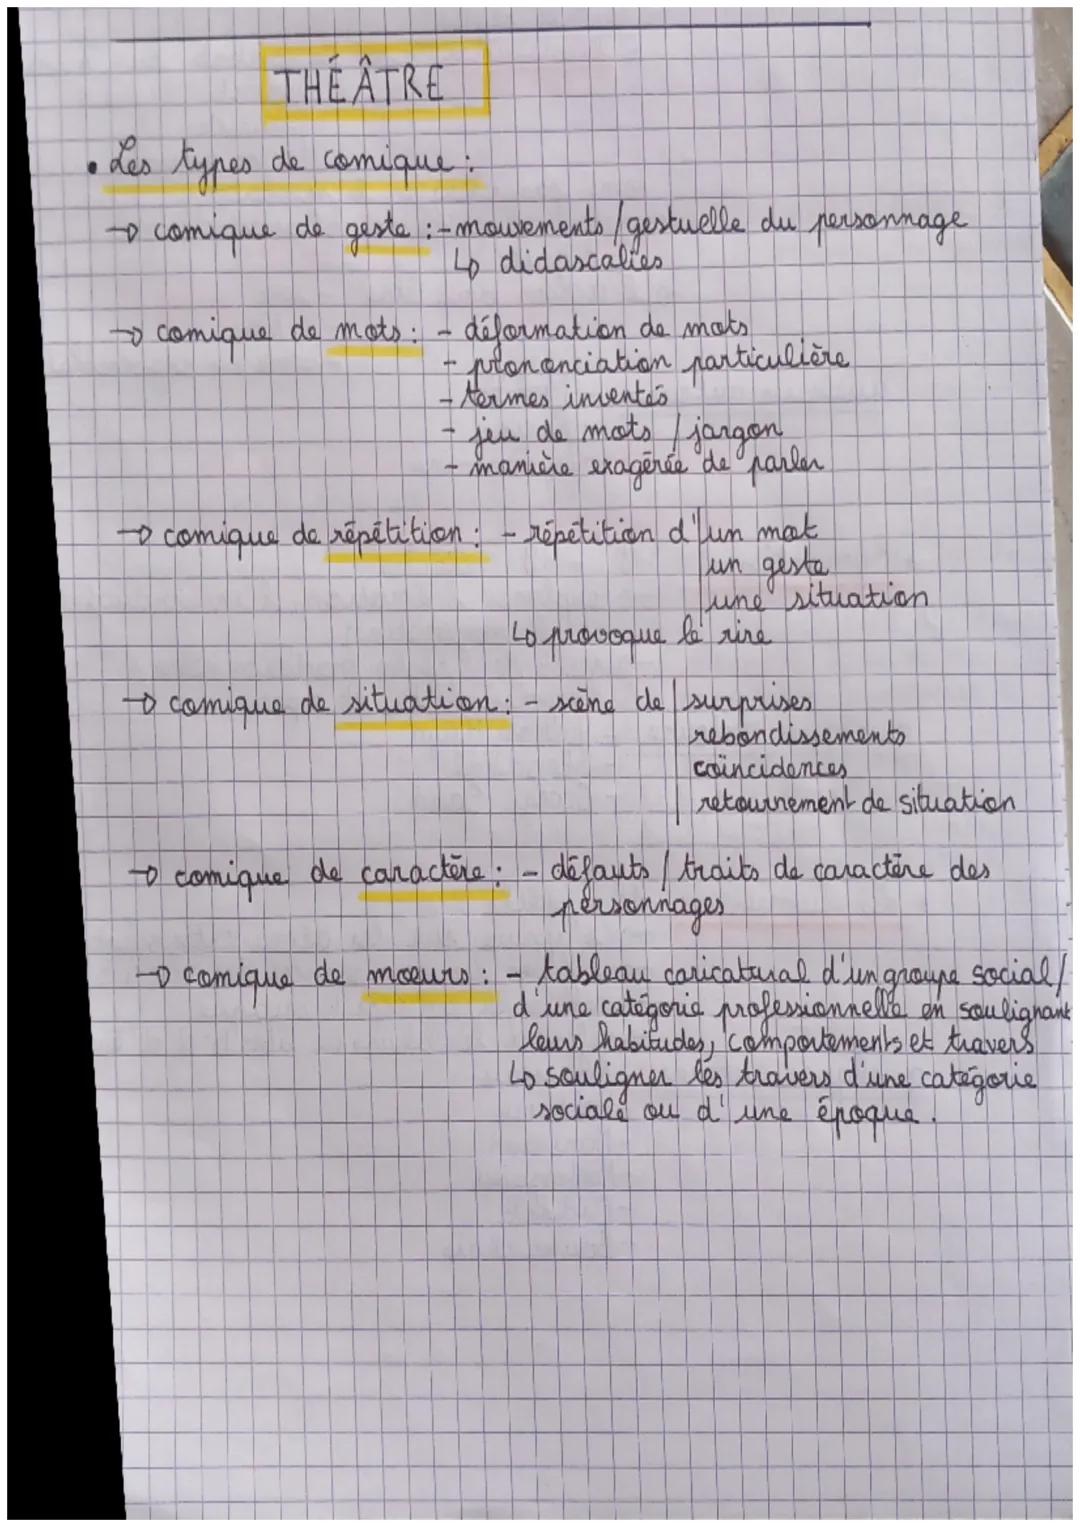 THÉÂTRE
• Les types de comique :
→ comique de geste : - mouvements / gestuelle du personnage
↳ didascalies
→ comique de mots : - déformation de mots
- prononciation particulière
- termes inventés
- jeu de mots / jargon
- manière exagérée de parler
→ comique de répétition : - répétition d'| un mot
un geste
une situation
↳ provoque le rire
→ comique de situation : - scène de | surprises
rebondissements
coïncidences
retournement de situation
→ comique de caractère : - défauts / traits de caractère des
personnages
→ comique de moeurs : - tableau caricatural d'un groupe social /
d'une catégorie professionnelle en soulignant
leurs habitudes, comportements et travers
↳ souligner les travers d'une catégorie
sociale ou d'une époque.